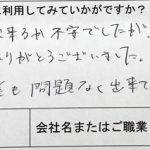 利用してみていかがですか？
来るか不安でしたが、
りがとうございました。
も問題なく出来て
会社名またはご職業